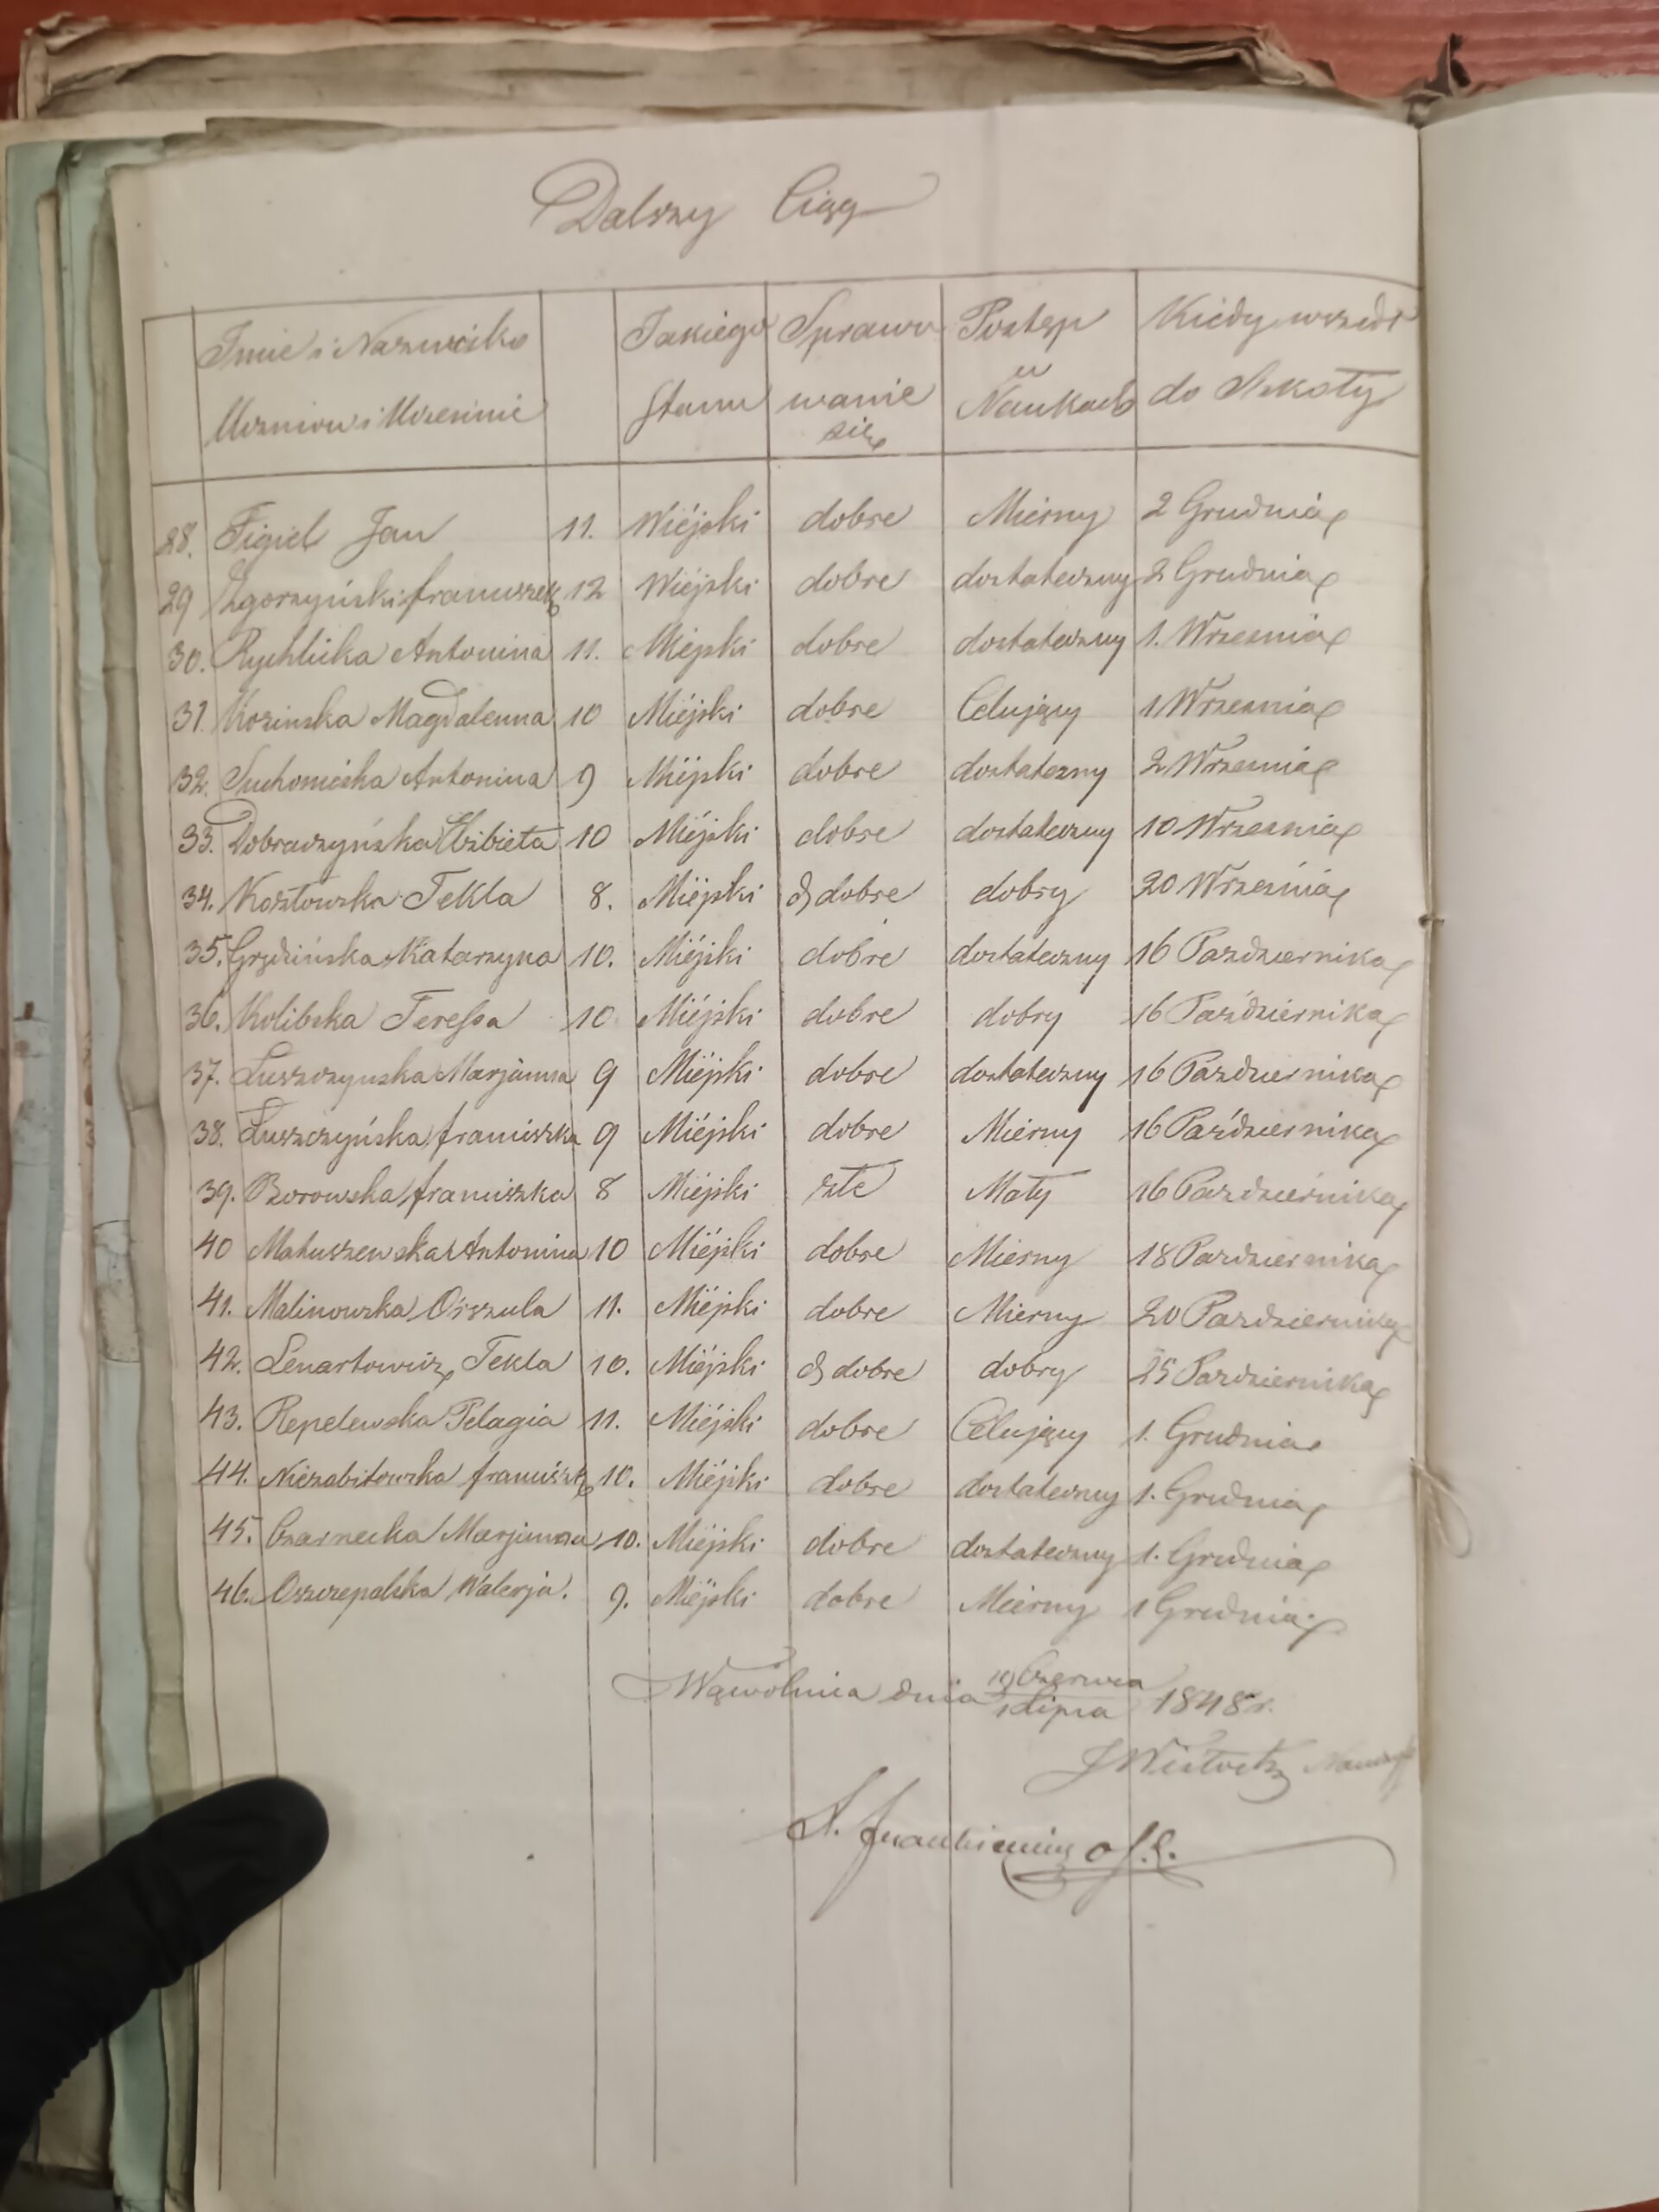 Dalszy Ciąg
Imie i Nazwisko Uczniow i Uczennic Jakiego Stanu Sprawowanie się Postęp w Naukach Kiedy wszedł do Szkoły
28. Figiel Jan 11. Wiéjski dobre Mierny 2 Grudnia
29 Zgorzyński franciszek 12 Wiéjski dobre dostateczny 2 Grudnia
30. Rychlicka Antonina 11. Miéjski dobre dostateczny 1. Wrzesnia
31. Kozinska Magdalenna 10 Miéjski dobre Celujący 1 Wrzesnia
32. Suchomiska Antonina 9 Miéjski dobre dostatezny 2 Wrzesnia
33. Dobraczyńska Elżbieta 10 Miéjski dobre dostateczny 10 Wrzesnia
34. Kozłowska Tekla 8. Miéjski dobre dobry 20 Wrzesnia
35. Grędzińska Katarzyna 10. Miéjski dobre dostateczny 16 Pazdziernika
36. Kolibska Teressa 10 Miéjski dobre dobry 16 Pazdziernika
37. Łuszczynska Marjanna 9 Miéjski dobre dostateczny 16 Pazdziernika
38. Łuszczyńska franciszka 9 Miéjski dobre Mierny 16 Października
39. Borowska franciszka 8 Miéjski złe Mały 16 Pazdziernika
40 Matuszewska Antonina 10 Miéjski dobre Mierny 18 Pazdziernika
41. Malinowska Orszula 11. Miéjski dobre Mierny 20 Pazdziernika
42. Lenartowicz Tekla 10. Miéjski dobre dobry 25 Pazdziernika
43. Repelewska Pelagia 11. Miéjski dobre Celujący 1. Grudnia
44. Niezabitowska franciszk 10. Miéjski dobre dostateczny 1. Grudnia
45. Czarnecka Marjanna 10. Miéjski dobre dostateczny 1. Grudnia
46. Oszczepalska Walerja. 9. Miéjski dobre Mierny 1 Grudnia
Wąwolnica dnia 19 Czerwca / 1 Lipca 1848 r.